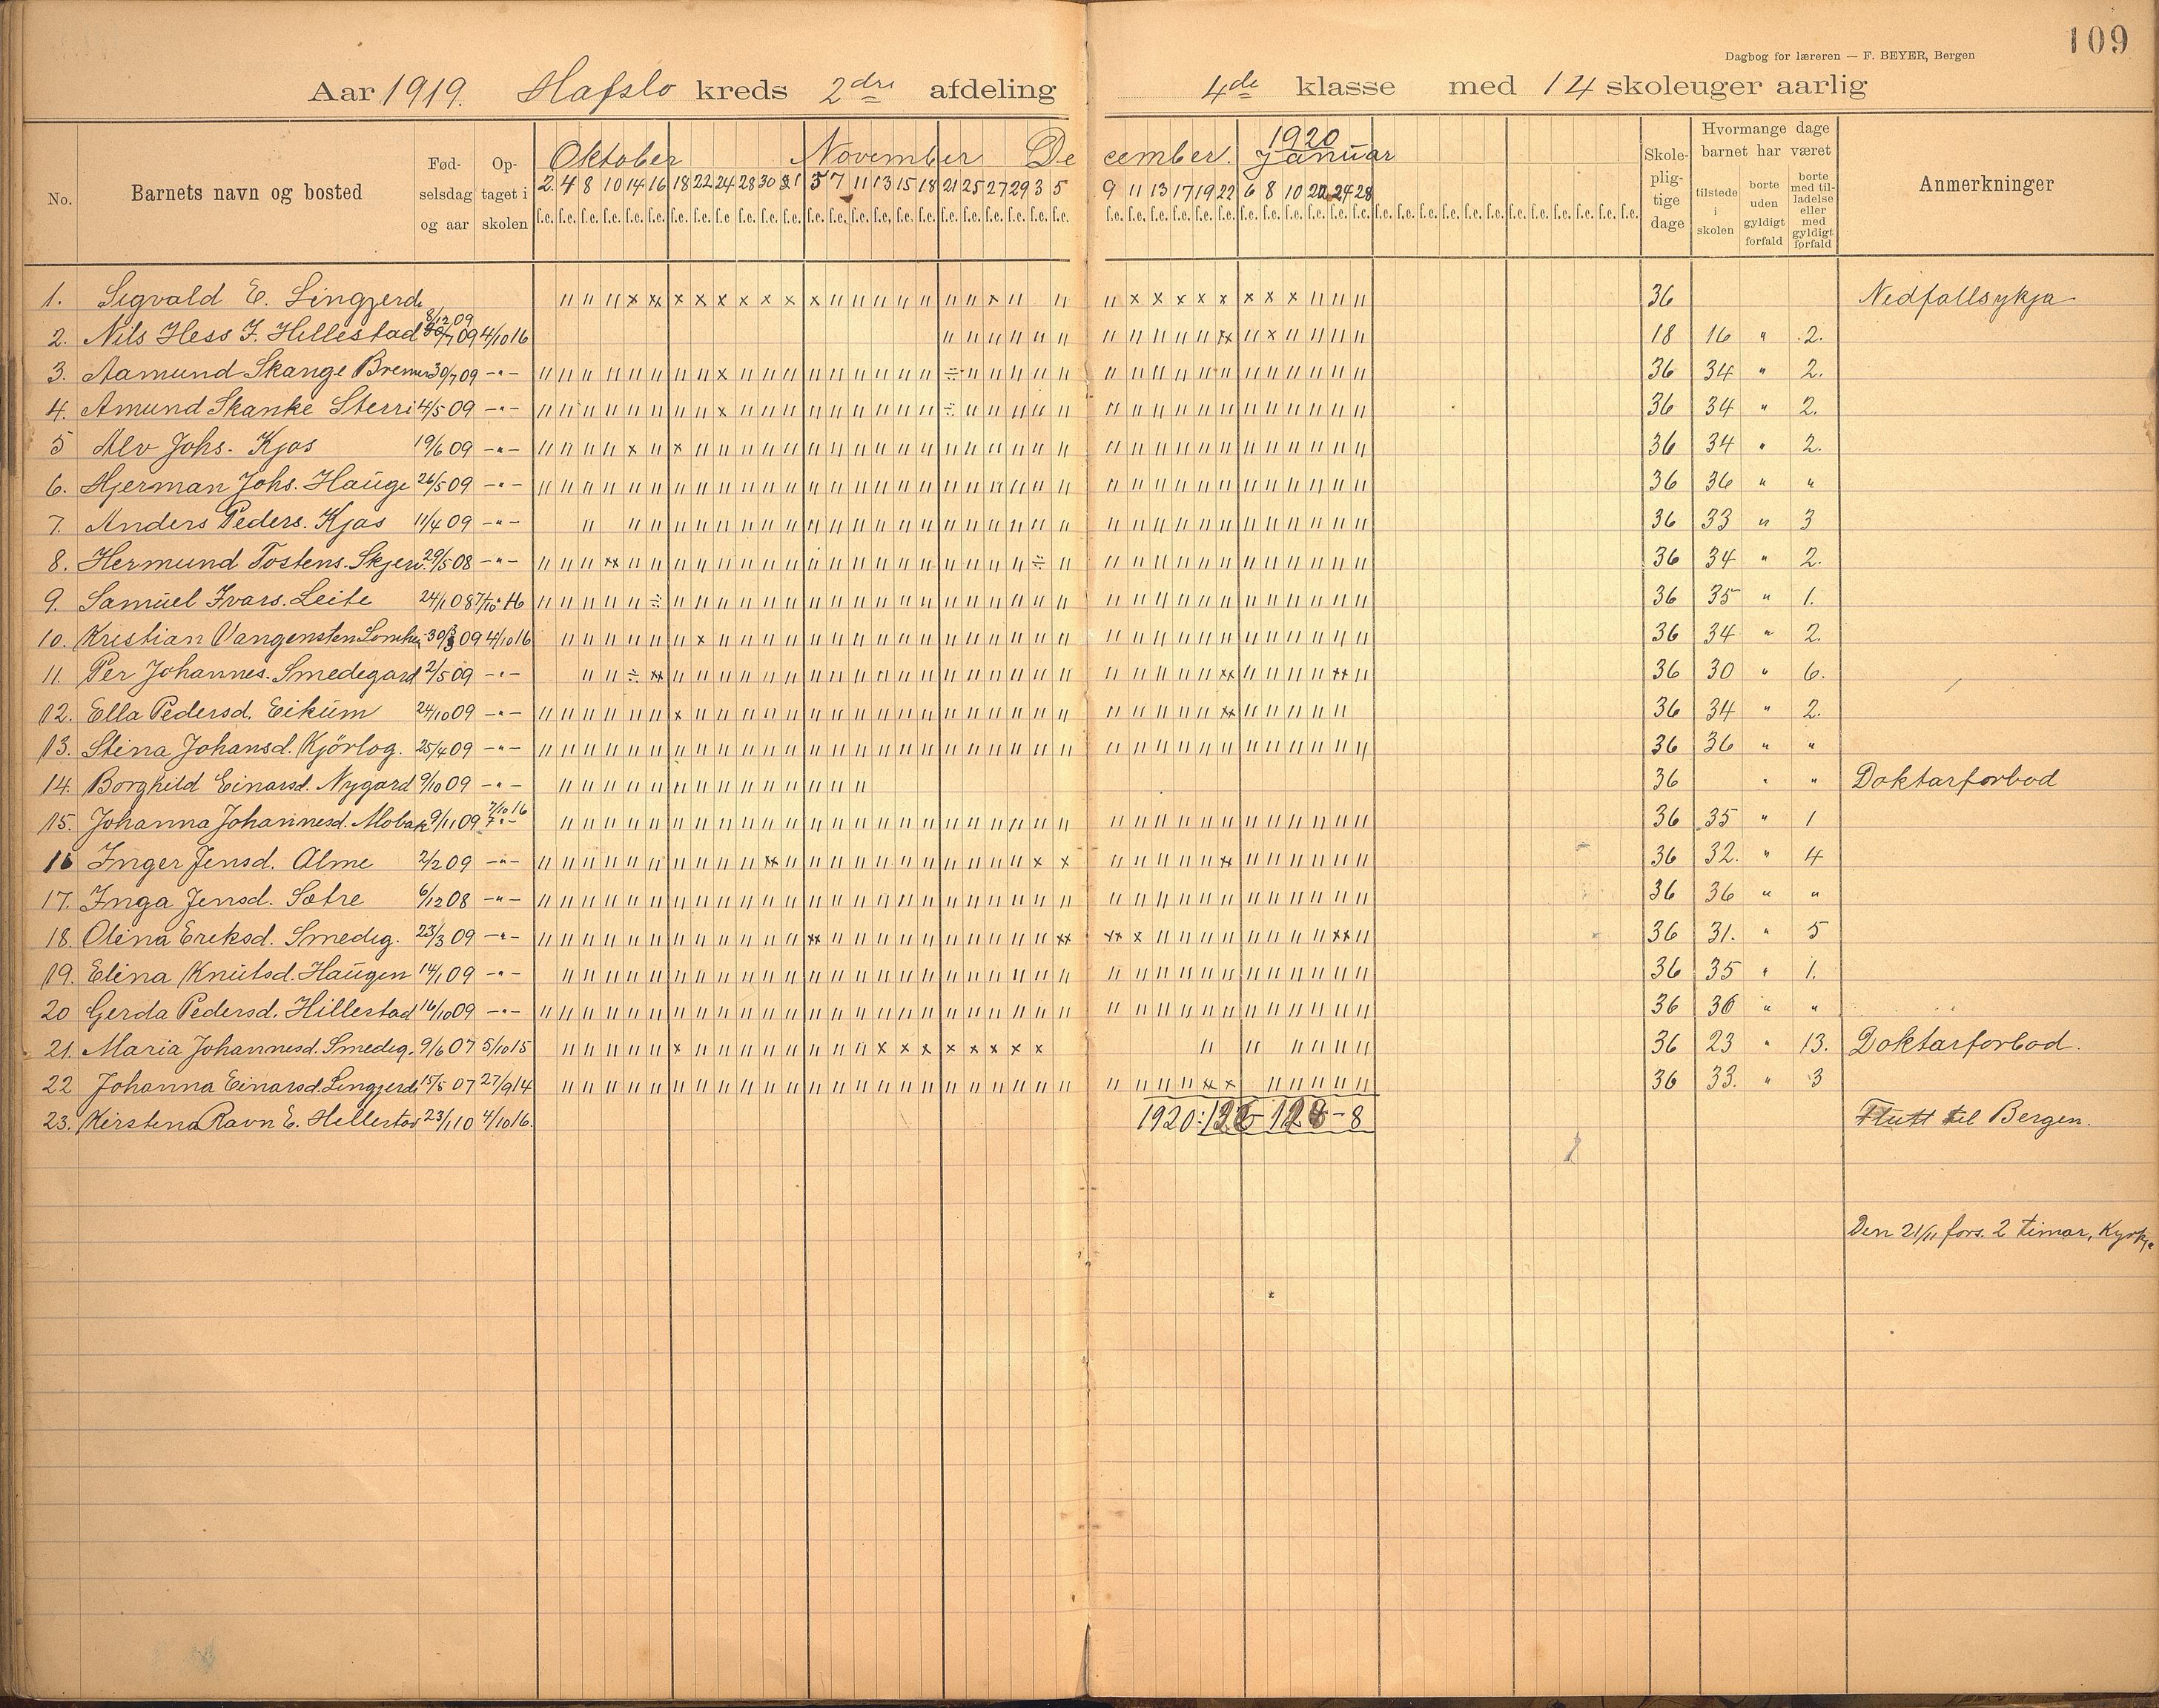 109
Dagbog for læreren — F. BEYER, Bergen
Aar 1919. Hafslo kreds 2dre afdeling 4de klasse med 14 skoleuger aarlig
No.
Barnets navn og bosted
Fød-
selsdag
og aar
Op-
taget i
skolen
Oktober November December. 1920 Januar
2. 4 8 10 14 16 18 22 24 28 30 31 5 7 11 13 15 18 21 25 27 29 3 5 9 11 13 17 19 22 6 8 10 22 24 28
f.e. f.e. f.e. f.e. f.e. f.e. f.e. f.e. f.e. f.e. f.e. f.e. f.e. f.e. f.e. f.e. f.e. f.e. f.e. f.e. f.e. f.e. f.e. f.e. f.e. f.e. f.e. f.e. f.e. f.e. f.e. f.e. f.e. f.e. f.e. f.e. f.e. f.e. f.e. f.e. f.e. f.e. f.e. f.e. f.e. f.e. f.e. f.e.
Skole-
plig-
tige
dage
Hvormange dage
barnet har været
tilstede
i
skolen
borte
uden
gyldigt
forfald
borte
med til-
ladelse
eller
med
gyldigt
forfald
Anmerkninger
1. Sigvald E. Lingjerde 8/12 09 36 Nedfallsykja
2. Nils Hess J. Hillestad 09 4/10 16 18 16 " 2.
3. Aamund Skange Bremer 30/7 09 -"- 36 34 " 2.
4. Amund Skanke Sterri 4/5 09 -"- 36 34 " 2.
5 Alv Johs. Kjos 19/6 09 -"- 36 34 " 2.
6. Hjerman Johs. Hauge 26/5 09 -"- 36 36 " "
7. Anders Peders. Kjos 11/4 09 -"- 36 33 " 3
8. Hermund Tostens. Skjeri 29/5 08 -"- 36 34 " 2.
9. Samuel Ivars. Leite 24/1 08 7/10 16 36 35 " 1.
10. Kristian Vangensten 30/3 09 4/10 16 36 34 " 2.
11. Per Johannes. Smedegard 2/5 09 -"- 36 30 " 6.
12. Ella Pedersd. Eikum 24/10 09 -"- 36 34 " 2.
13. Stina Johansd. Kjörlog. 25/4 09 -"- 36 36 " "
14. Borghild Einarsd. Nygard 9/10 09 -"- 36 " " Doktarforbod
15. Johanna Johannesd. Mobak 9/11 09 7/10 16 36 35 " 1
16 Inger Jensd. Alme 2/2 09 -"- 36 32. " 4
17. Inga Jensd. Sætre 6/12 08 -"- 36 36 " "
18. Olina Ereksd. Smedig. 23/3 09 -"- 36 31. " 5
19. Elina Knutsd. Haugen 14/1 09 -"- 36 35 " 1.
20 Gerda Pedersd. Hillestad 16/10 09 -"- 36 36 " "
21. Maria Johannesd. Smedig. 9/6 07 5/10 15 36 23 " 13. Doktarforbod.
22 Johanna Einarsd. Lingjerde 15/5 07 27/9 14 36 33. " 3
23. Kirstena Ravn E. Hillestad 23/1 10 4/10 16. 1920: - 8 Flutt til Bergen.
Den 21/11 fors. 2 timar, Kyrkje